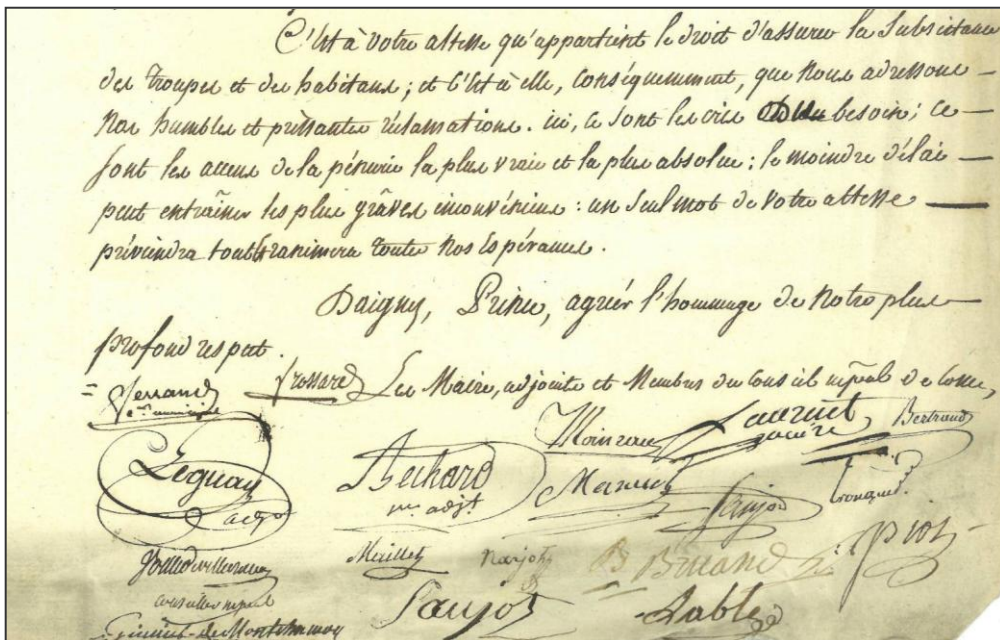 C'est à votre altesse qu'appartient le droit d'assurer la Subsistance
des troupes et des habitans ; et c'est à elle, conséquemment, que nous adressons
nos humbles et pressantes réclamations. ici, ce sont les cris du besoin ; ce
sont les accens de la pénurie la plus vraie et la plus absolue : le moindre délai
peut entraîner les plus grâves inconvéniens : un seul mot de votre altesse
préviendra tout & ranimera toutes nos Espérances.
Daigny, Prince, agréer l'hommage de notre plus
profond respect.
Ferrand frossard Les Maire, adjoints et Membres du Conseil mpal de
Moineau Laurent maire Bertrand
Leguay adjt Bechard adjt
Mailley Narjot B Binand
Saujot Sable